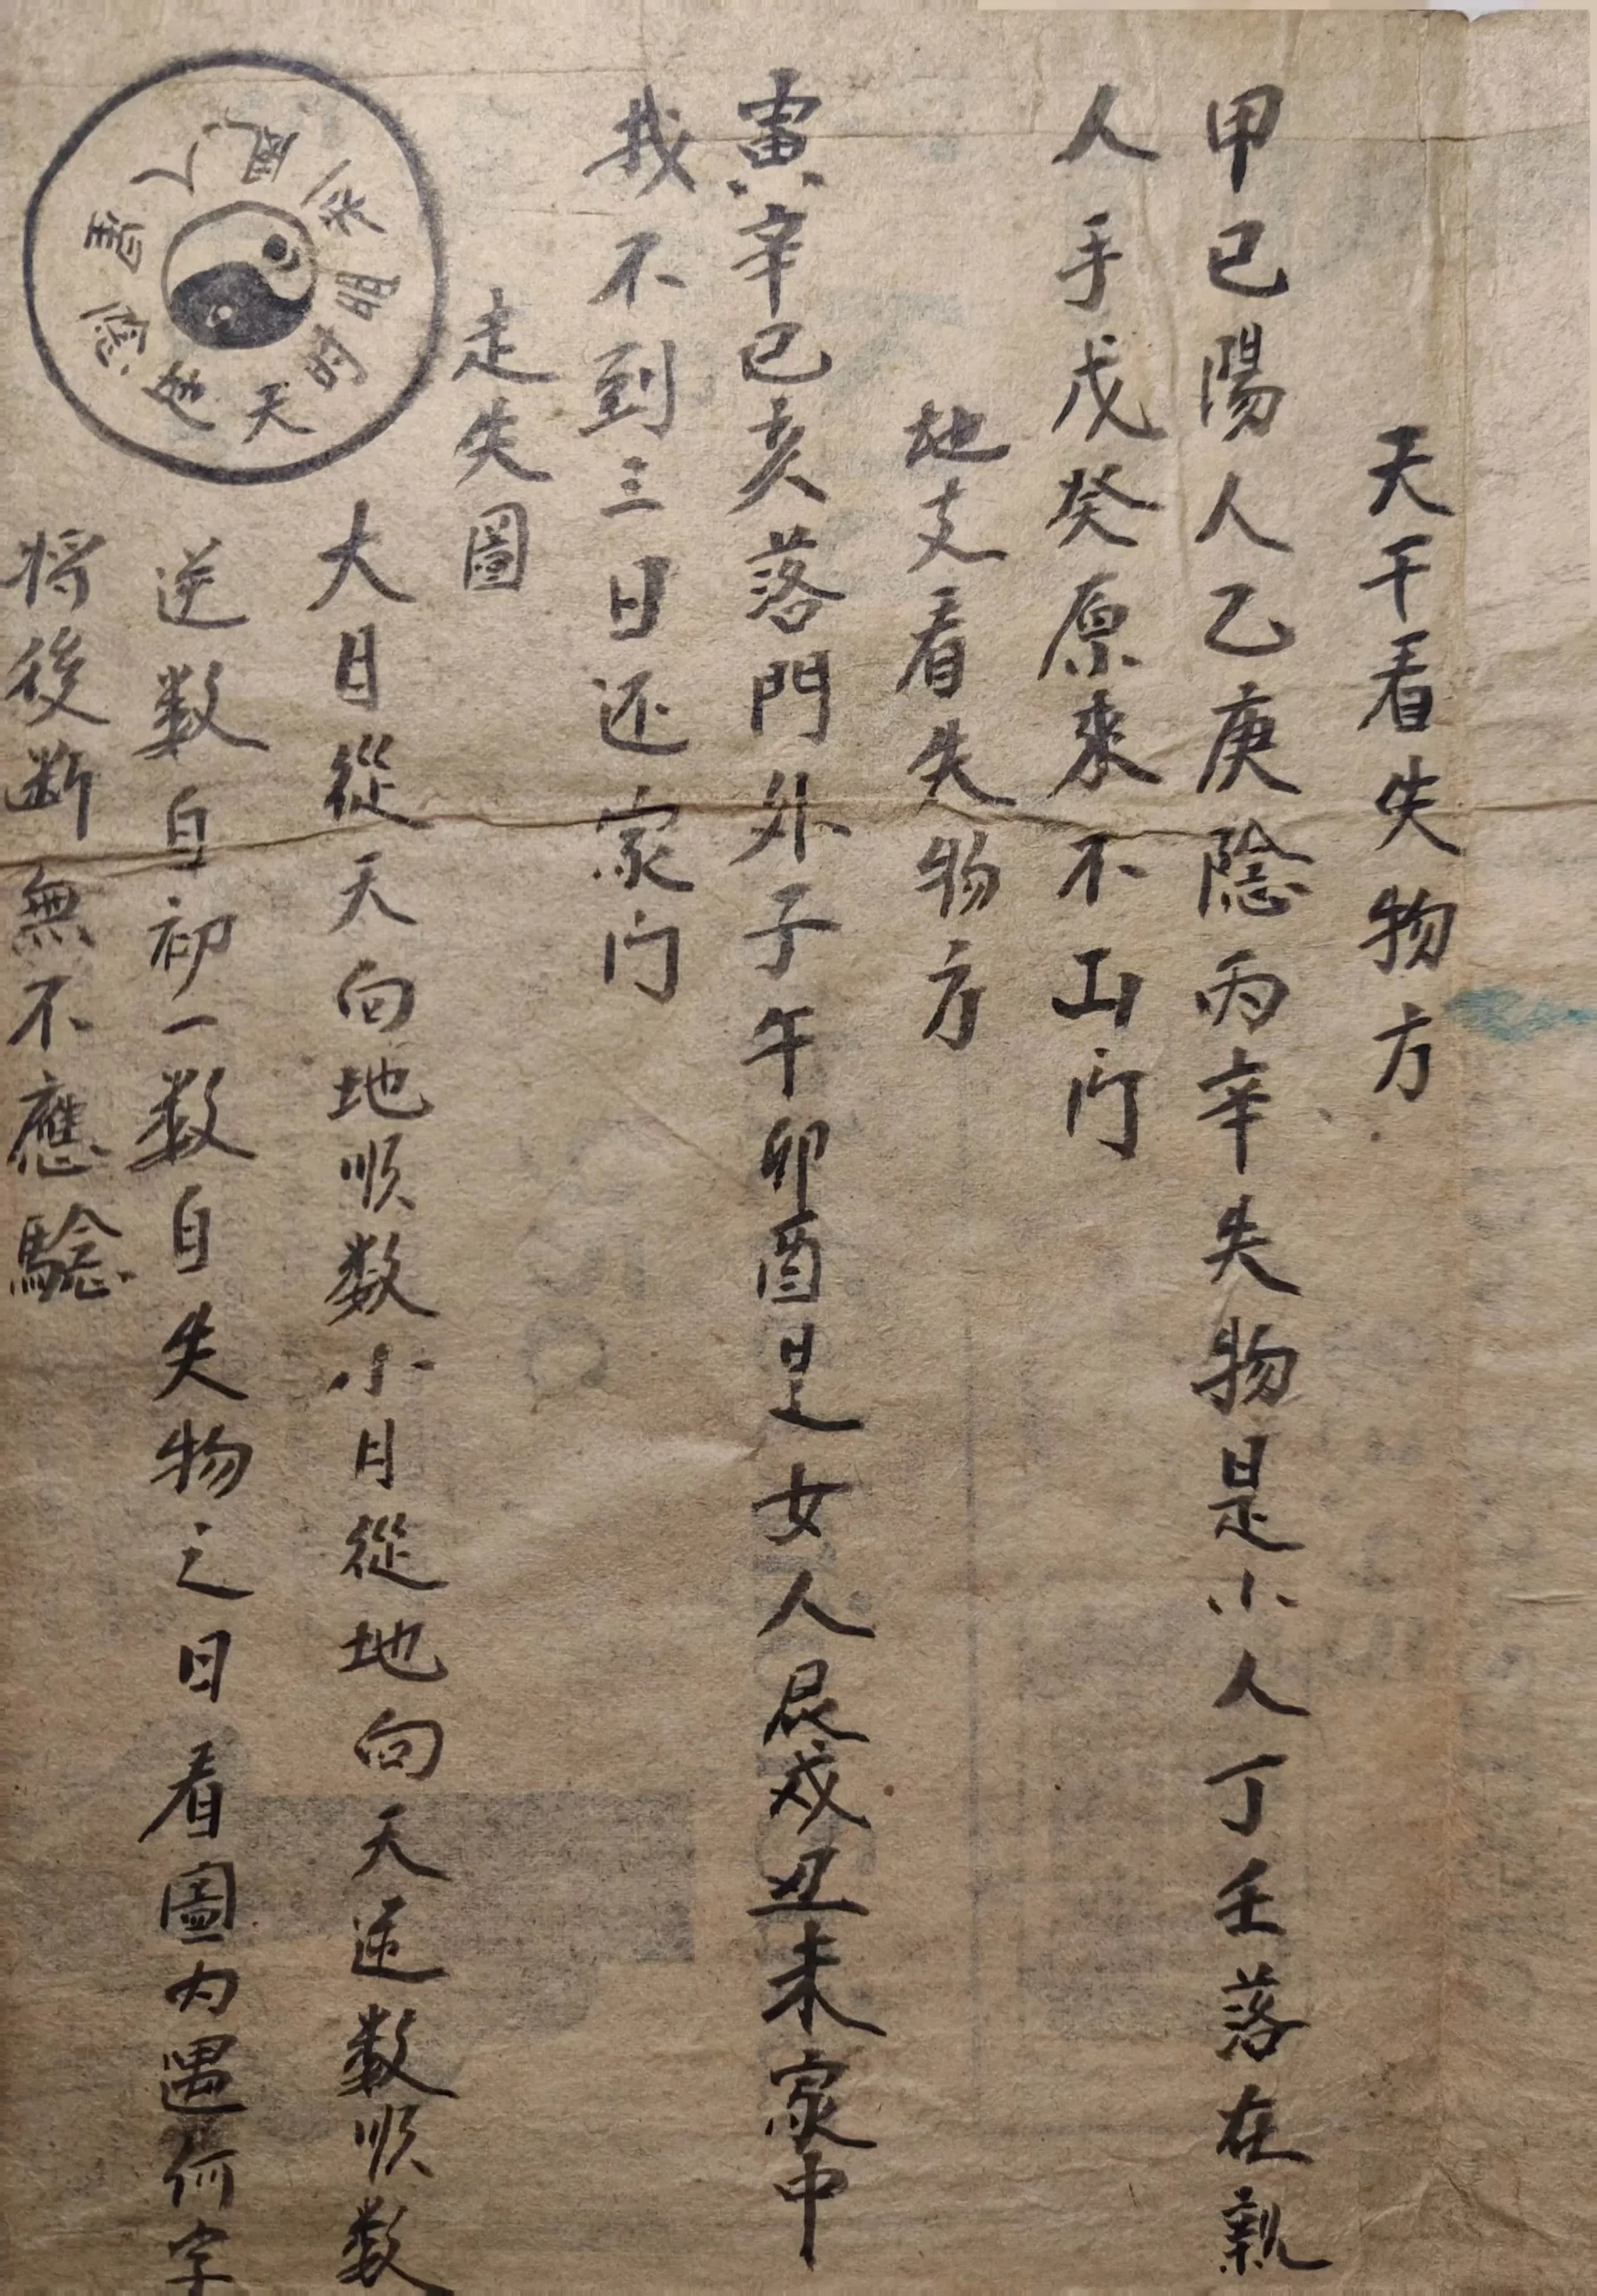 天干看失物方
甲己陽人乙庚隂丙辛失物是小人丁壬落在親
人手戊癸原來不出门
地支看失物方
寅辛巳亥落門外子午卯酉是女人辰戌丑未家中
找不到三日还家门
走失圖
大月從天向地順数小月從地向天逆数順数
逆数自初一数自失物之日看圖内遇何字
将後断無不應驗
天时明
人